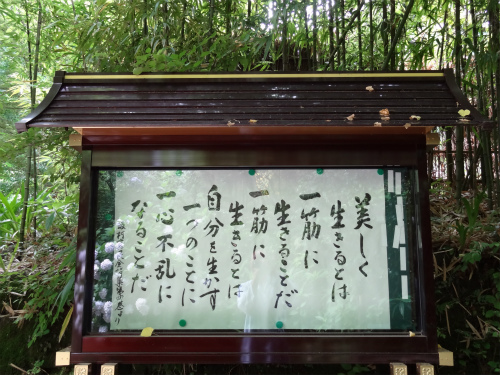 美しく
生きるとは
一筋に
生きることだ
一筋に
生きるとは
自分を生かす
一つのことに
一心不乱に
なることだ